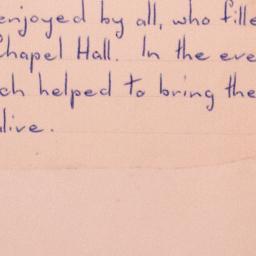 enjoyed by all, who fille
Chapel Hall. In the eve
ch helped to bring the
live.